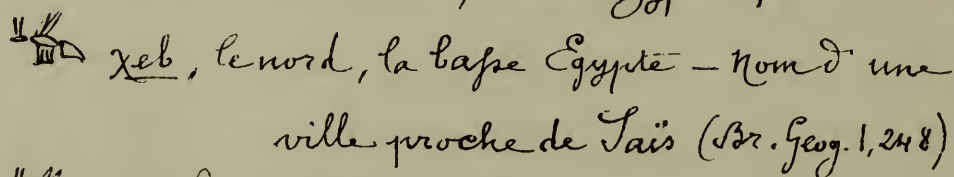 χeb, le nord, la basse Egypte – Nom d'une
ville proche de Saïs (Br. Geog. 1, 248)